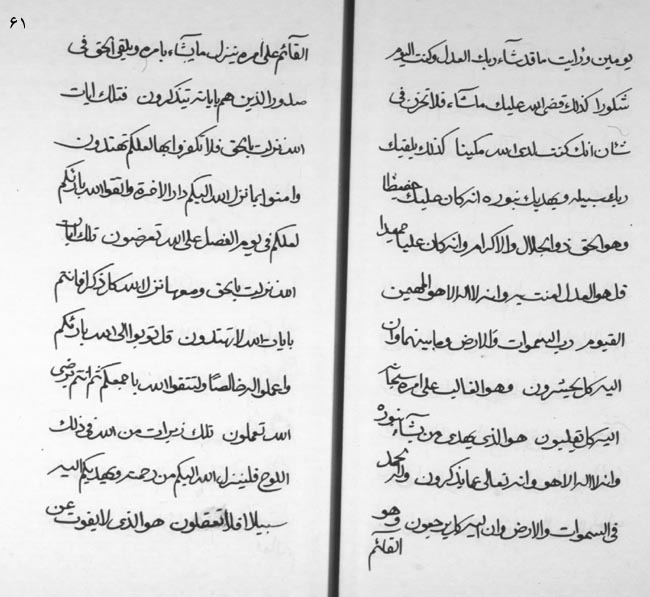 ۶۱
يومين ورايت ما قد شآء ربك العدل وكنت اليوم
شكورا كذلك قضى الله عليك ماشآء فلا تحزن فى
شان انك كنت لدى الله مكينا كذلك يلقيك
ربك سبيله ويهديك بنوره انه كان عليك حفيظا
وهو الحق ذو الجلال والاكرام وانه كان عليا حميدا
قل هو العدل امنت به وانه لااله الا هو المهيمن
القيوم رب السموات والارض وما بينهما وان
اليه كل يحشرون وهو الغالب على امره
اليه كل يقلبون هو الذى يهدى من يشآء بنوره
وانه لااله الا هو وانه تعالى عما يذكرون وله الحمد
فى السموات والارض وان اليه كل يرجعون وهو
القآئم
القآئم على امره ينزل ما يشآء بامره ويلقى الحق فى
صدور الذين هم باياته يتذكرون فتلك ايات
الله نزلت بالحق فلا تكفروا بها لعلكم تهتدون
وامنوا بما نزل الله اليكم دار الاخرة واتقوا الله بارئكم
لعلكم فى يوم الفصل على الله تعرضون تلك ايات
الله نزلت بالحق وصعها نزل الله كل ذكر افانتم
بايات الله لا تهتدون قل توبوا الى الله بارئكم
واعملوا لله خالصا ولتتقوا الله باجمعكم ثم انتم برضى
الله تعملون تلك زبرات من الله فى ذلك
اللوح فلينزل الله اليكم من رحمته ويهديكم اليه
سبيلا افلا تعقلون هو الذى لايفوت عن